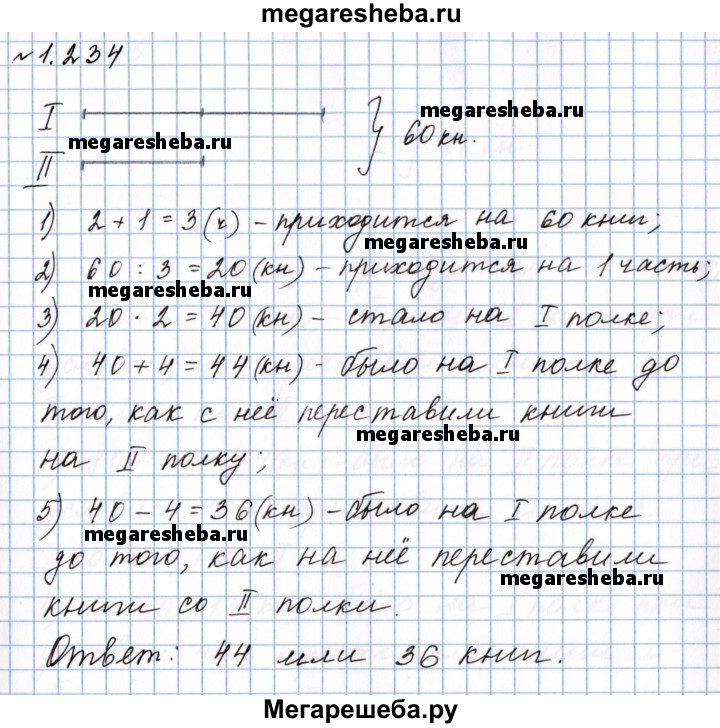 megaresheba.ru
№1.234
I
megaresheba.ru
60 кн.
megaresheba.ru
II
1) 2+1=3(ч) – приходится на 60 книг;
megaresheba.ru
2) 60:3=20(кн) – приходится на 1 часть;
megaresheba.ru
3) 20·2=40(кн) – стало на I полке;
4) 40+4=44(кн) – было на I полке до
того, как с неё переставили книги
megaresheba.ru
на II полку;
5) 40-4=36(кн) – было на I полке
megaresheba.ru
до того, как на неё переставили
megaresheba.ru
книги со II полки.
Ответ: 44 или 36 книг.
Мегарешеба.ру